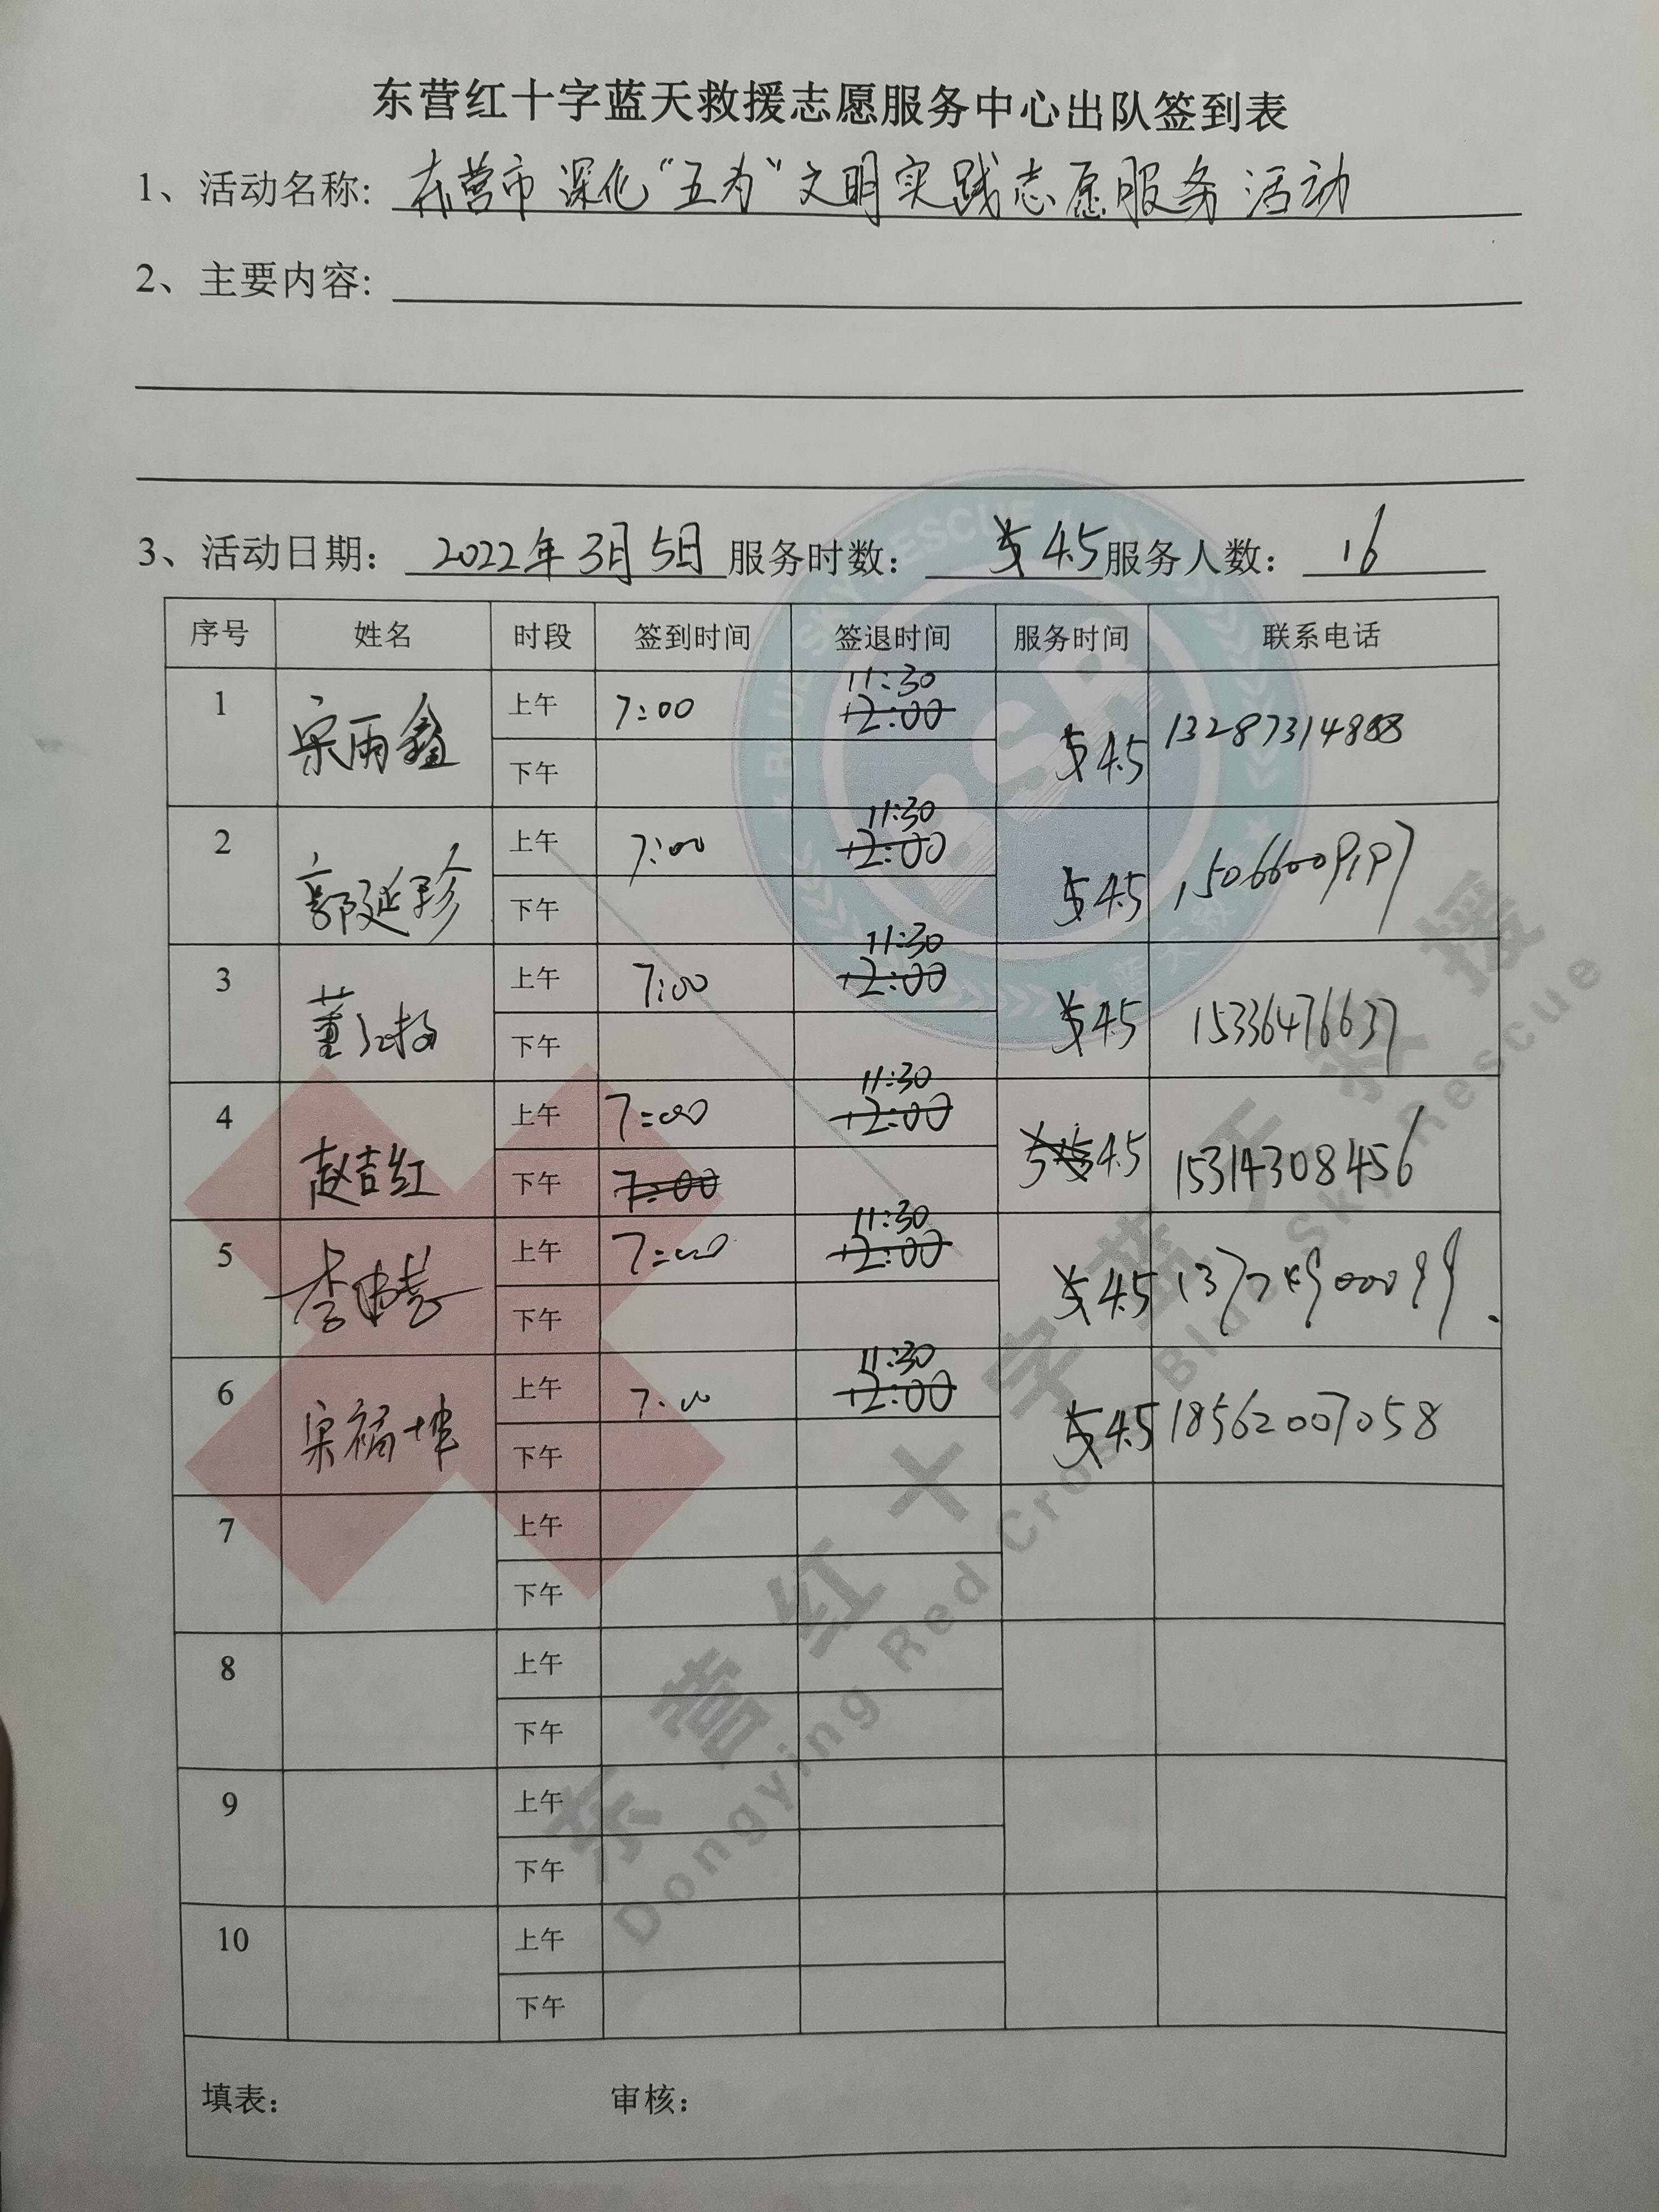 东营红十字蓝天救援志愿服务中心出队签到表
1、活动名称: 东营市深化“五为”文明实践志愿服务活动
2、主要内容:
3、活动日期: 2022年3月5日 服务时数: 5 4.5 服务人数: 16
序号 姓名 时段 签到时间 签退时间 服务时间 联系电话
1 宋雨鑫 上午 7:00 12:00 11:30 5 4.5
下午
2 郭延珍 上午 7:00 12:00 11:30 5 4.5
下午
3 董红梅 上午 7:00 12:00 11:30 5 4.5 15336476637
下午
4 赵吉红 上午 7:00 12:00 11:30 4.5 15314308456
下午 7:00
5 上午 7:00 12:00 11:30 5 4.5
下午
6 宋福坤 上午 7:00 12:00 11:30 5 4.5 18562007058
下午
7 上午
下午
8 上午
下午
9 上午
下午
10 上午
下午
填表: 审核:
BLUE SKY RESCUE
BSR
蓝天救援
东营红十字蓝天救援
Dongying Red Cross Blue Sky Rescue